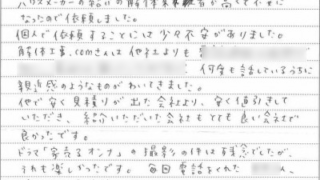 ハウスメーカーの紹介の解体業者が高くて不安に
なったので依頼しました。
個人で依頼することには少々不安がありました。
解体工事.comさんは他社よりも
何度も話しているうちに
親近感のようなものがわいてきました。
他で安く見積りが出た会社より、安く値引きして
いただき、紹介いただいた会社もとても良い会社で
良かったです。
ドラマ「家売るオンナ」の撮影の件は残念でしたが、
それも楽しかったです。毎回電話をくれた さん、